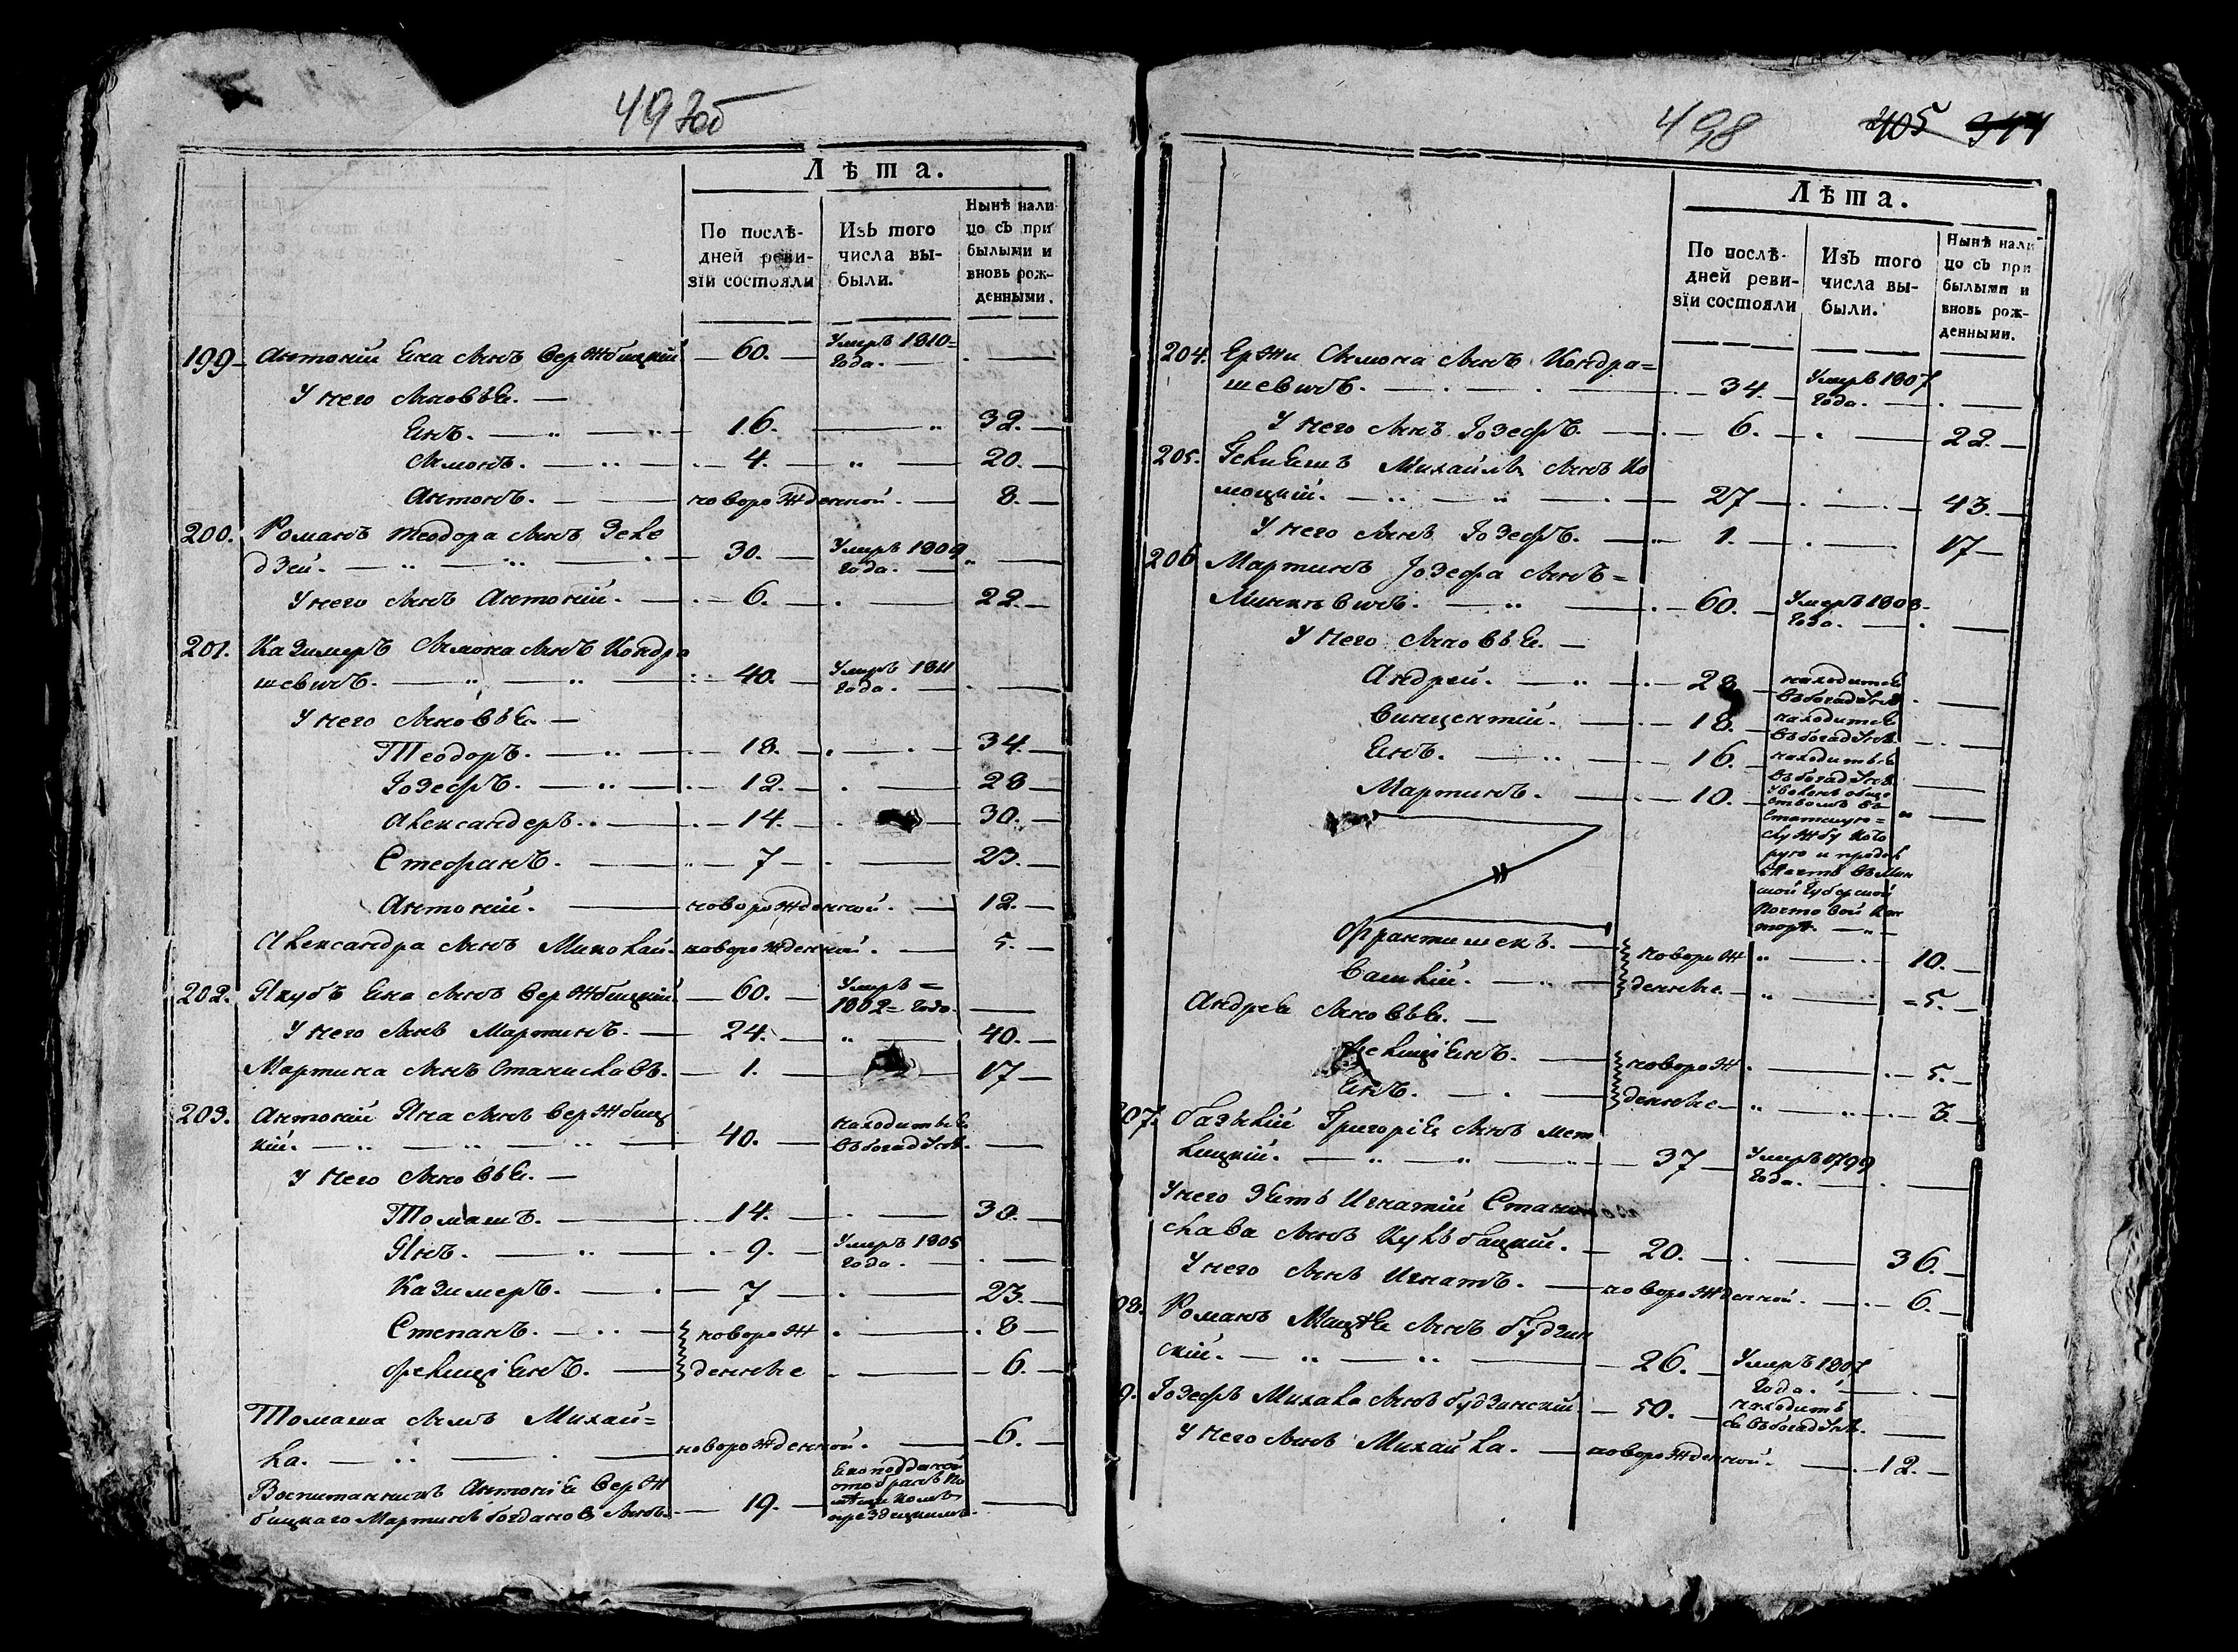 Лѣта.
По послѣ-
дней реви-
зіи состояли
Изъ того
числа вы-
были.
Нынѣ нали
цо съ при
былыми и
вновь рож-
денными.
199 Антоній Яна сынъ Вержбицкій 60. Умеръ 1810=
года.
У него сыновья.
Янъ. 16. 32.
Симонъ. 4. 20.
Антонъ. новорожденной. 8.
200. Романъ Теодора сынъ
дзей. 30. Умеръ 1809
года.
У него сынъ Антоній. 6. 22.
201. Казимеръ Симона сынъ Кондра
шевичъ. 40. Умеръ 1811
года.
У него сыновья.
Теодоръ. 18. 34.
Іозефъ. 12. 28
Александеръ. 14. 30.
Стефанъ. 7 23.
Антоній. новорожденной. 12.
Александра сынъ Миколай. новорожденной. 5.
202. Якубъ Яна сынъ Вержбицкій. 60. Умеръ =
1802= года.
У него сынъ Мартинъ. 24. 40.
Мартина сынъ Станиславъ. 1. 17
203. Антоній Яна сынъ Вержбиц
кій. 40. находится
въ богадѣлнѣ.
У него сыновья.
Томашъ. 14. 30.
Янъ. 9. Умеръ 1805
года.
Казимеръ. 7 23.
Степанъ. новорож 8
Фелиціянъ. денные 6.
Томаша сынъ Михай=
ла. новорожденной. 6.
Воспитанникъ Антонія Верж
бицкаго Мартинъ Богдановъ сынъ. 19.
498 405
Лѣта.
По послѣ-
дней реви-
зіи состояли
Изъ того
числа вы-
были.
Нынѣ нали
цо съ при
былыми и
вновь рож-
денными.
204. Ержи Симона сынъ Кондра=
шевичъ. 34. Умеръ 1807
года.
У него сынъ Іозефъ. 6. 22.
205. Михайла сынъ Ко
моцкій. 27 43.
У него сынъ Іозефъ. 1. 17
206 Мартинъ Іозефа сынъ=
Минкевичъ. 60. Умеръ 1808
года.
У него сыновья.
Андрей. 28 находится
въ богадѣлнѣ
Винцентій. 18. находится
въ богадѣлнѣ.
Янъ. 16. находится
въ богадѣлнѣ
Мартинъ. 10. обще
ствомъ въ
Статскую=
службу кото
рую и продол
жаетъ въ Мин
ской Губерской
Почтовой Кон
торѣ.
Франтишекъ. новорож 10.
Василій. денные 5.
Андрея сыновья.
Фелиціянъ. новорож 5.
Янъ. денные 3.
207. Базылій Григорія сынъ Мет
лицкій. 37 Умеръ 1799
года.
У него зять Игнатій Стани
слава сынъ Кульбацкій. 20. 36.
У него сынъ Игнатъ. новорожденной. 6.
08. Романъ Мацѣя сынъ Будзин
скій. 26. Умеръ 1807
года.
9. Іозефъ Михала сынъ Будзинскій 50. находит
ся въ богадѣлнѣ.
У него сынъ Михайла. новорожденной. 12.